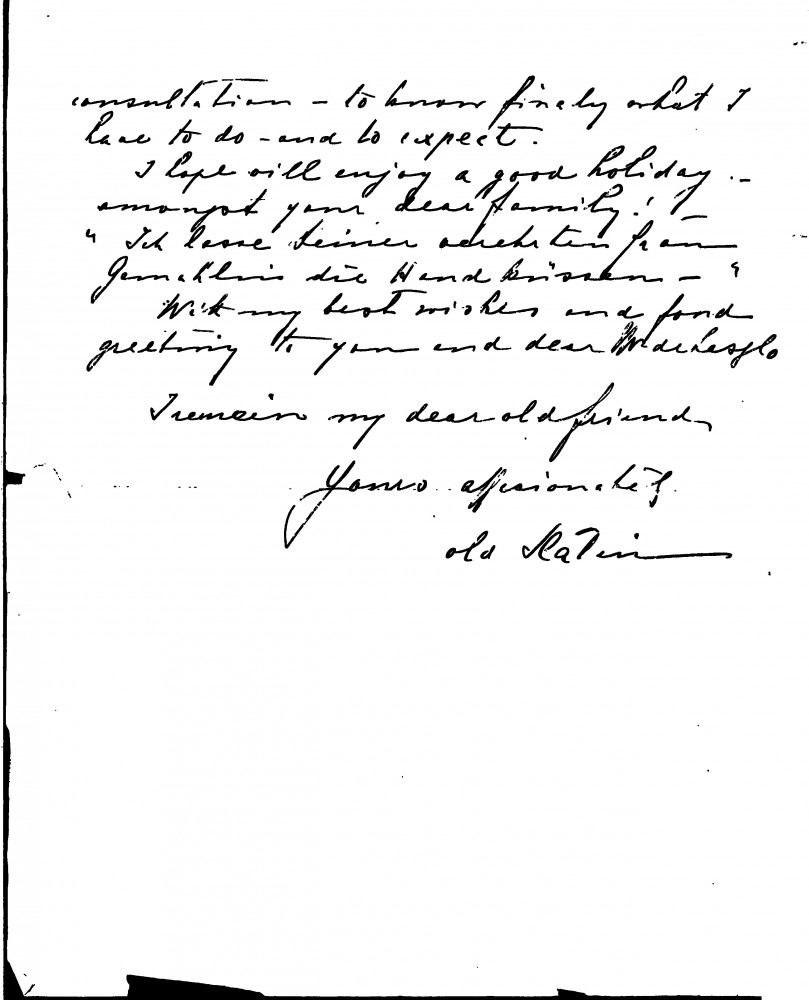 consultation – to know finaly what I
have to do – and to expect.
I hope will enjoy a good holiday –
amongst your dear family!
" Ich lasse Deiner verehrten Frau
Gemahlin die Hand küssen – "
With my best wishes and fond
greeting to you and dear M de Laszlo
I remain my dear old friend
Yours affesionately
old Slatin